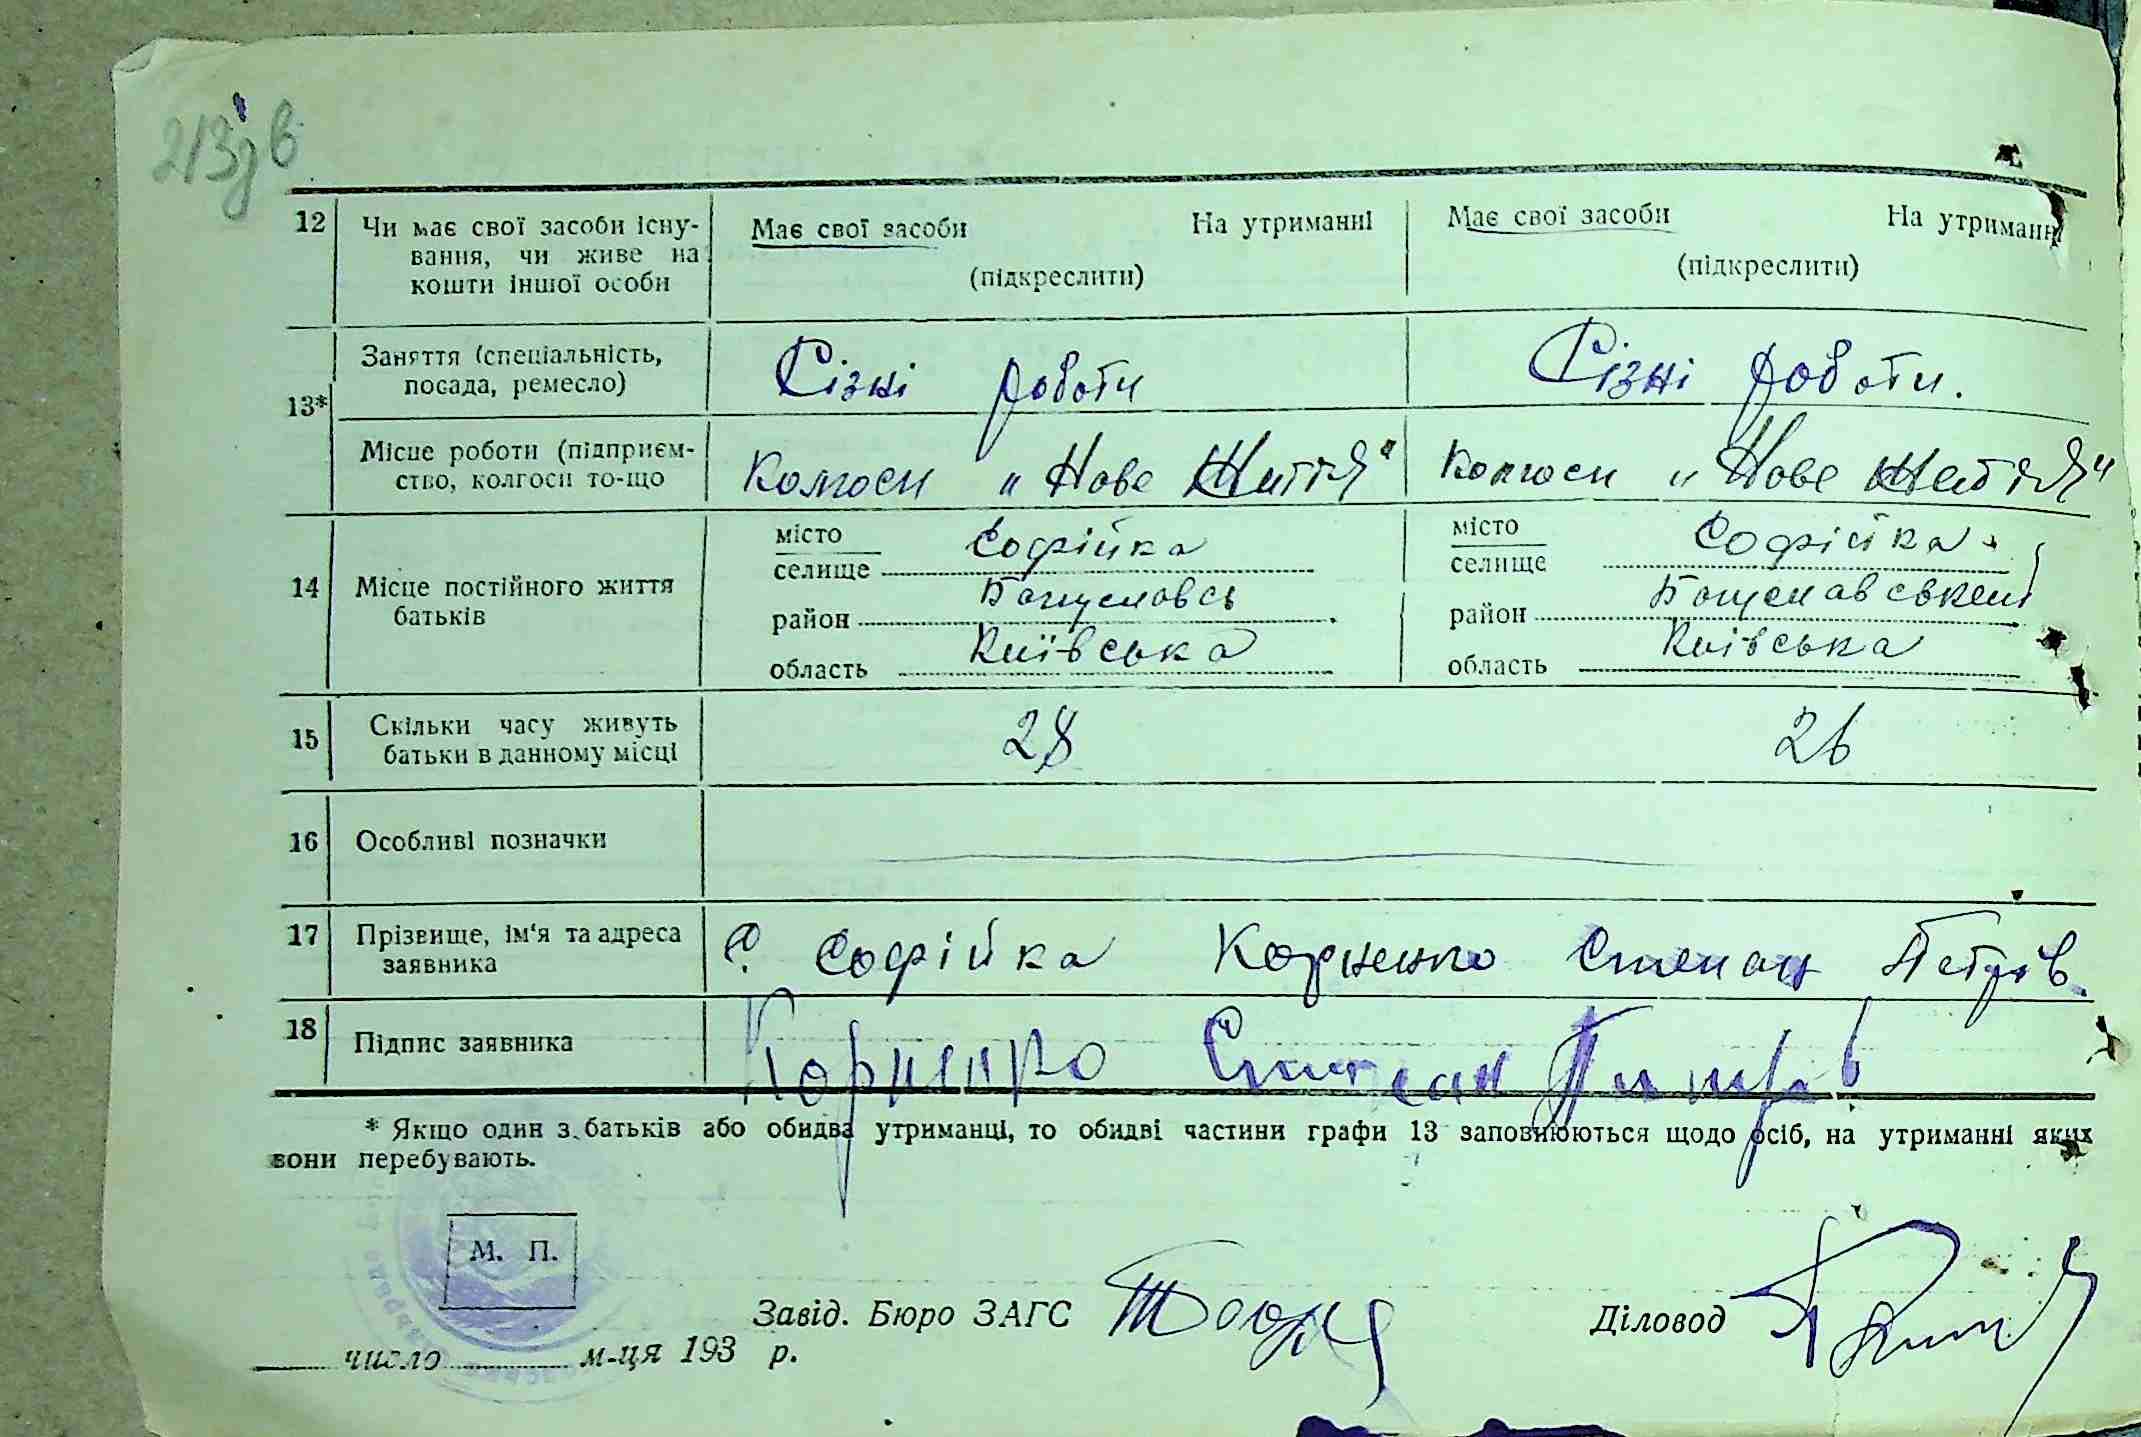 213зв
12 Чи має свої засоби існу- Має свої засоби На утриманні Має свої засоби На утриманні
вання, чи живе на (підкреслити) (підкреслити)
кошти іншої особи
13* Заняття (спеціальність, Різні роботи Різні роботи.
посада, ремесло)
Місце роботи (підприєм- Колгосп „Нове Життя" Колгосп „Нове Життя"
ство, колгосп то-що
14 Місце постійного життя батьків
місто Софійка місто Софійка
селище селище
район Богуславсь район Богуславський
область Київська область Київська
15 Скільки часу живуть 28 26
батьки в данному місці
16 Особливі позначки
17 Прізвище, ім'я та адреса С. Софійка Корненко Степан Петров.
заявника
18 Підпис заявника Корненко Степан
* Якщо один з батьків або обидва утриманці, то обидві частини графи 13 заповнюються щодо осіб, на утриманні яких
вони перебувають.
М. П.
Завід. Бюро ЗАГС Діловод
число м-ця 193 р.